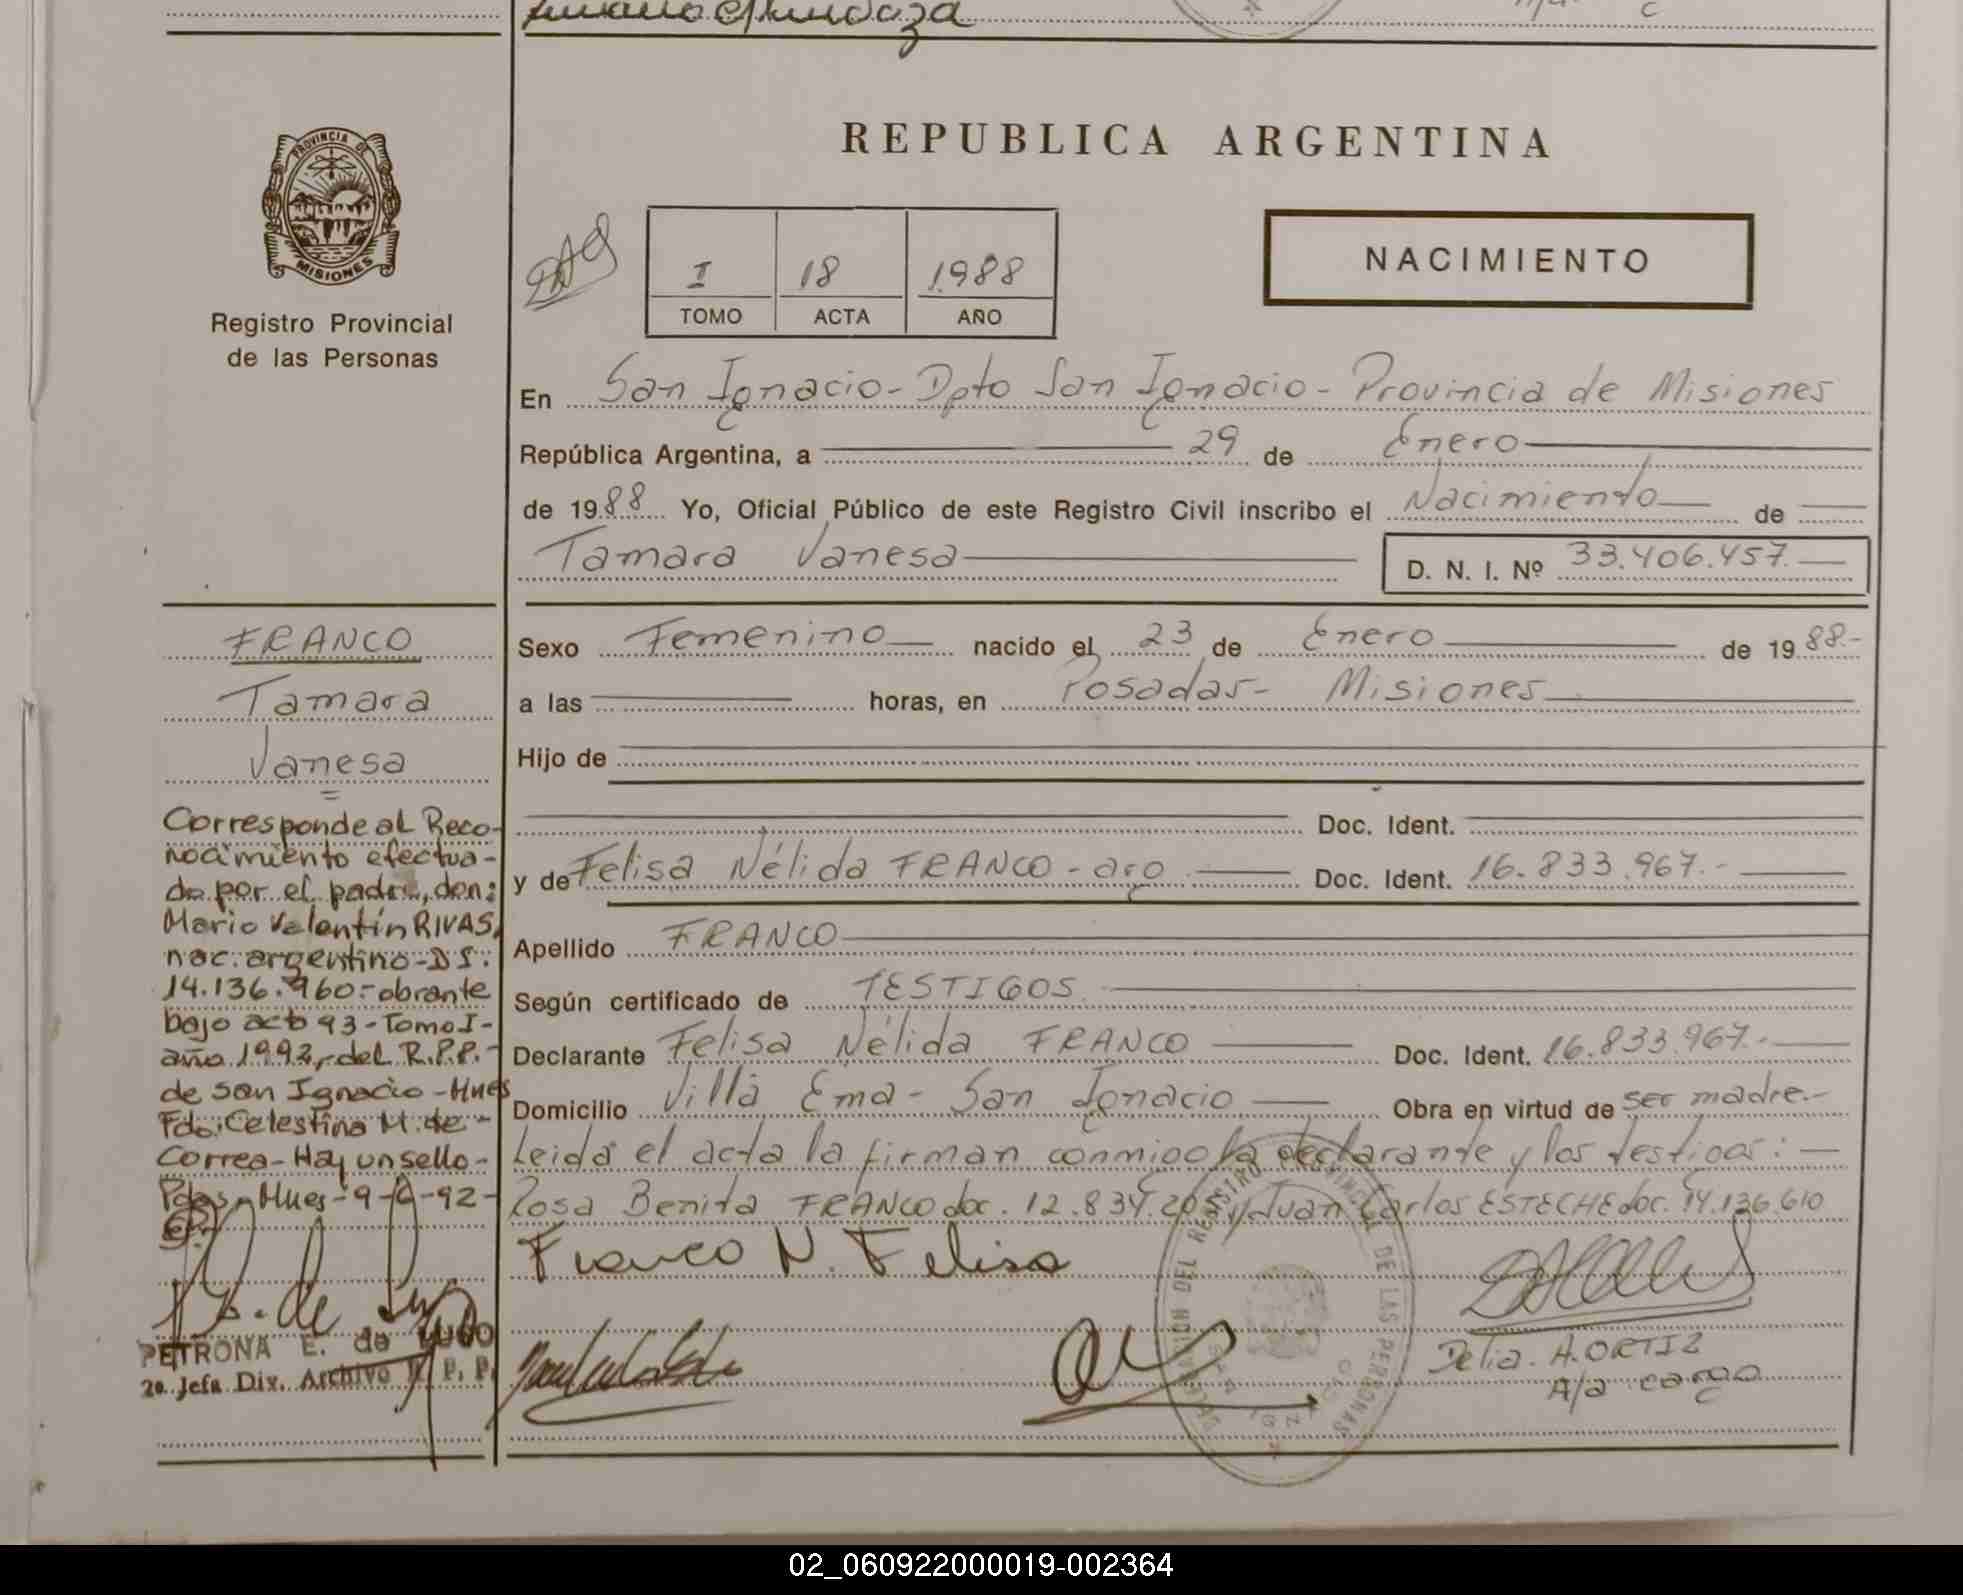 PROVINCIA DE
MISIONES
Registro Provincial
de las Personas
REPUBLICA ARGENTINA
I 18 1988
TOMO ACTA AÑO
NACIMIENTO
En San Ignacio - Dpto San Ignacio - Provincia de Misiones
República Argentina, a 29 de Enero
de 1988 Yo, Oficial Público de este Registro Civil inscribo el Nacimiento de
Tamara Vanesa D. N. I. Nº 33.406.457.-
Sexo Femenino nacido el 23 de Enero de 1988.-
a las horas, en Posadas - Misiones
Hijo de
Doc. Ident.
y de Felisa Nélida FRANCO - arg Doc. Ident. 16.833.967.-
Apellido FRANCO
Según certificado de TESTIGOS
Declarante Felisa Nélida FRANCO Doc. Ident. 16.833.967.-
Domicilio Villa Ema - San Ignacio Obra en virtud de ser madre.-
Leida el acta la firman conmigo la declarante y los testigos:
Rosa Benita FRANCO doc. 12.834.205 y Juan Carlos ESTECHE doc. 14.136.610
Franco N. Felisa
Delia. A. ORTIZ
A/a cargo
DELEGACION DEL REGISTRO PROVINCIAL DE LAS PERSONAS
SAN IGNACIO
FRANCO
Tamara
Vanesa
=
Corresponde al Reco-
nocimiento efectua-
do por el padre, don:
Mario Valentín RIVAS,
nac. argentino - D.I.
14.136.960.- obrante
bajo acta 93 - Tomo I -
año 1992, del R.P.P.-
de San Ignacio - Mnes
Fdo: Celestina M. de -
Correa - Hay un sello -
Pdas - Mnes - 9-6-92-
PETRONA E. de LUGO
2a. Jefa Div. Archivo R. P. P.
02_060922000019-002364